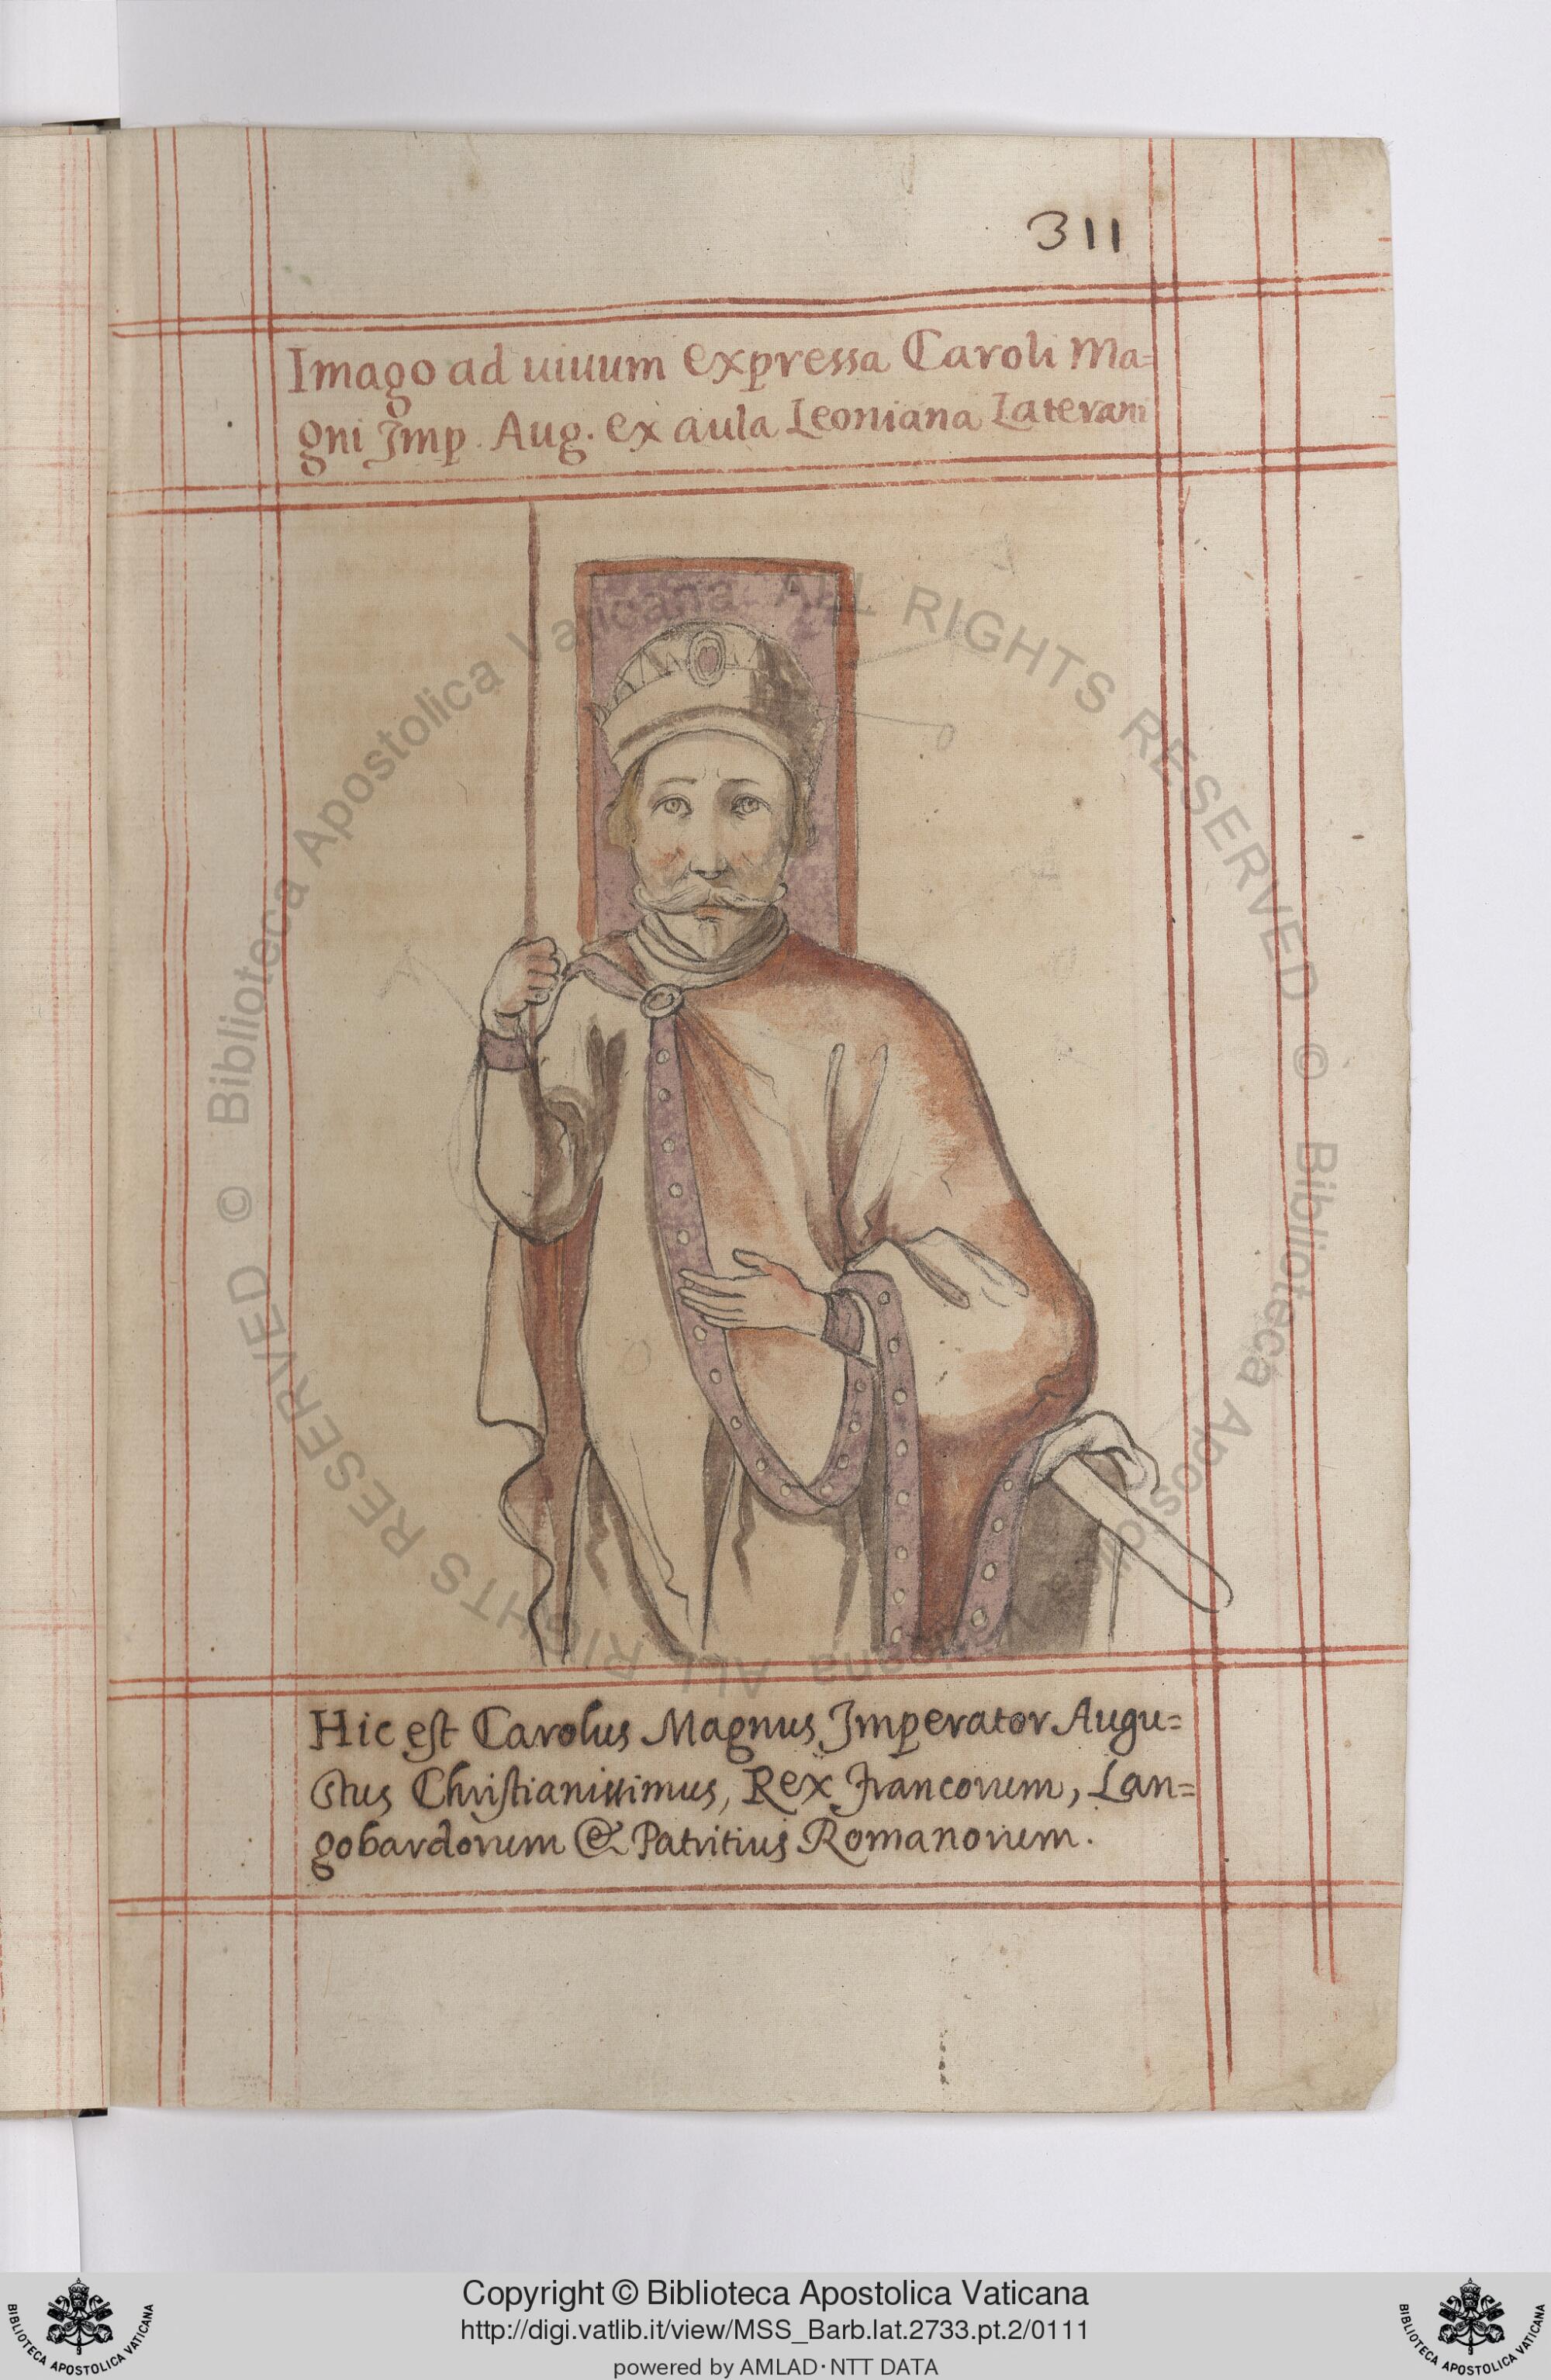 311
Imago ad uiuum expressa Caroli Ma=
gni Imp. Aug. ex aula Leoniana Laterani
Hic est Carolus Magnus Imperator Augu=
stus Christianissimus, Rex Francorum, Lan=
gobardorum & Patritius Romanorum.
© Biblioteca Apostolica Vaticana ALL RIGHTS RESERVED © Biblioteca Apostolica Vaticana ALL RIGHTS RESERVED
Copyright © Biblioteca Apostolica Vaticana
http://digi.vatlib.it/view/MSS_Barb.lat.2733.pt.2/0111
powered by AMLAD·NTT DATA
BIBLIOTECA APOSTOLICA VATICANA
BIBLIOTECA APOSTOLICA VATICANA